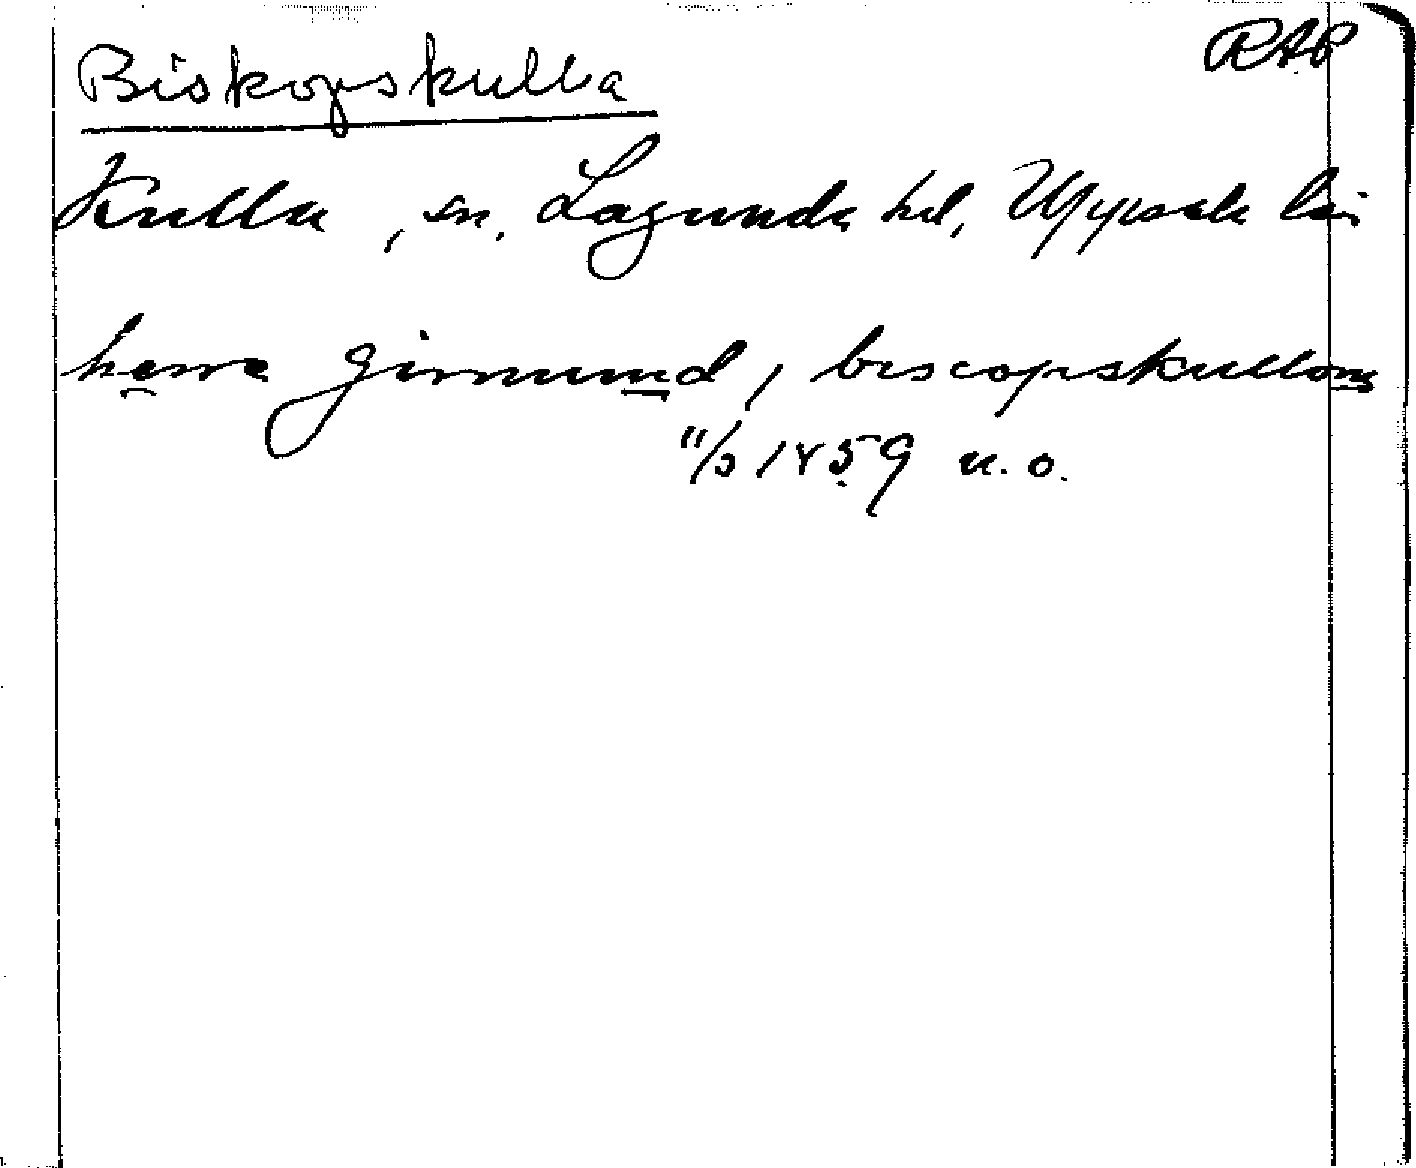 RAP
Biskopskulla
Kulla, sn, Lagunda hd, Uppsala län
herra Girmund, biscopskullom
11/3 1459 u. o.